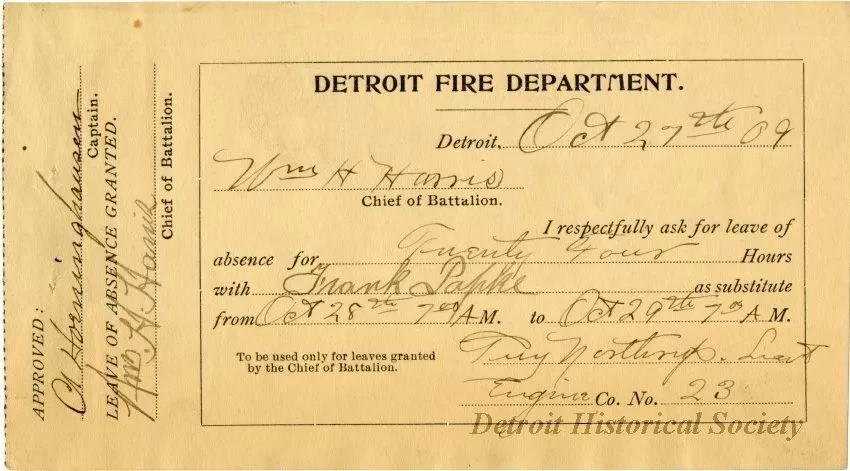 DETROIT FIRE DEPARTMENT.
Detroit, Oct 27th 09
Wm H Harris
Chief of Battalion.
I respectfully ask for leave of
absence for Twenty Four Hours
with Frank Papke as substitute
from Oct 28th 7 00 A.M. to Oct 29th 7 00 A.M.
To be used only for leaves granted
by the Chief of Battalion.
Northrup. Lieut
Engine Co. No. 23
APPROVED:
Captain.
LEAVE OF ABSENCE GRANTED.
Wm H Harris
Chief of Battalion.
Detroit Historical Society